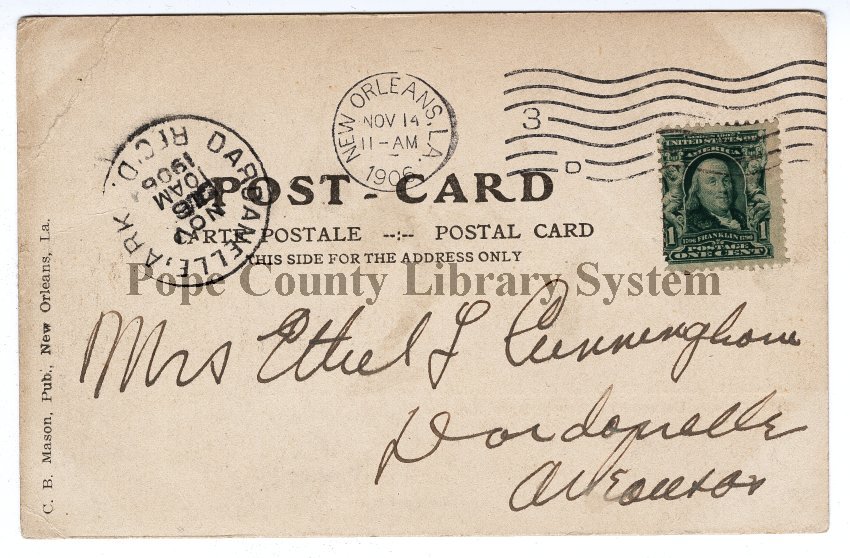 NEW ORLEANS, LA.
NOV 14
11-AM
1906
3
D
DARDANELLE, ARK.
REC'D
NOV
16
10AM
1906
UNITED STATES
OF AMERICA
1 1
FRANKLIN
POSTAGE
ONE CENT
POST-CARD
CARTE POSTALE --:-- POSTAL CARD
THIS SIDE FOR THE ADDRESS ONLY
Pope County Library System
Mrs Ethel L Cunningham
Dardanelle
Arkansas
C. B. Mason, Pub., New Orleans, La.